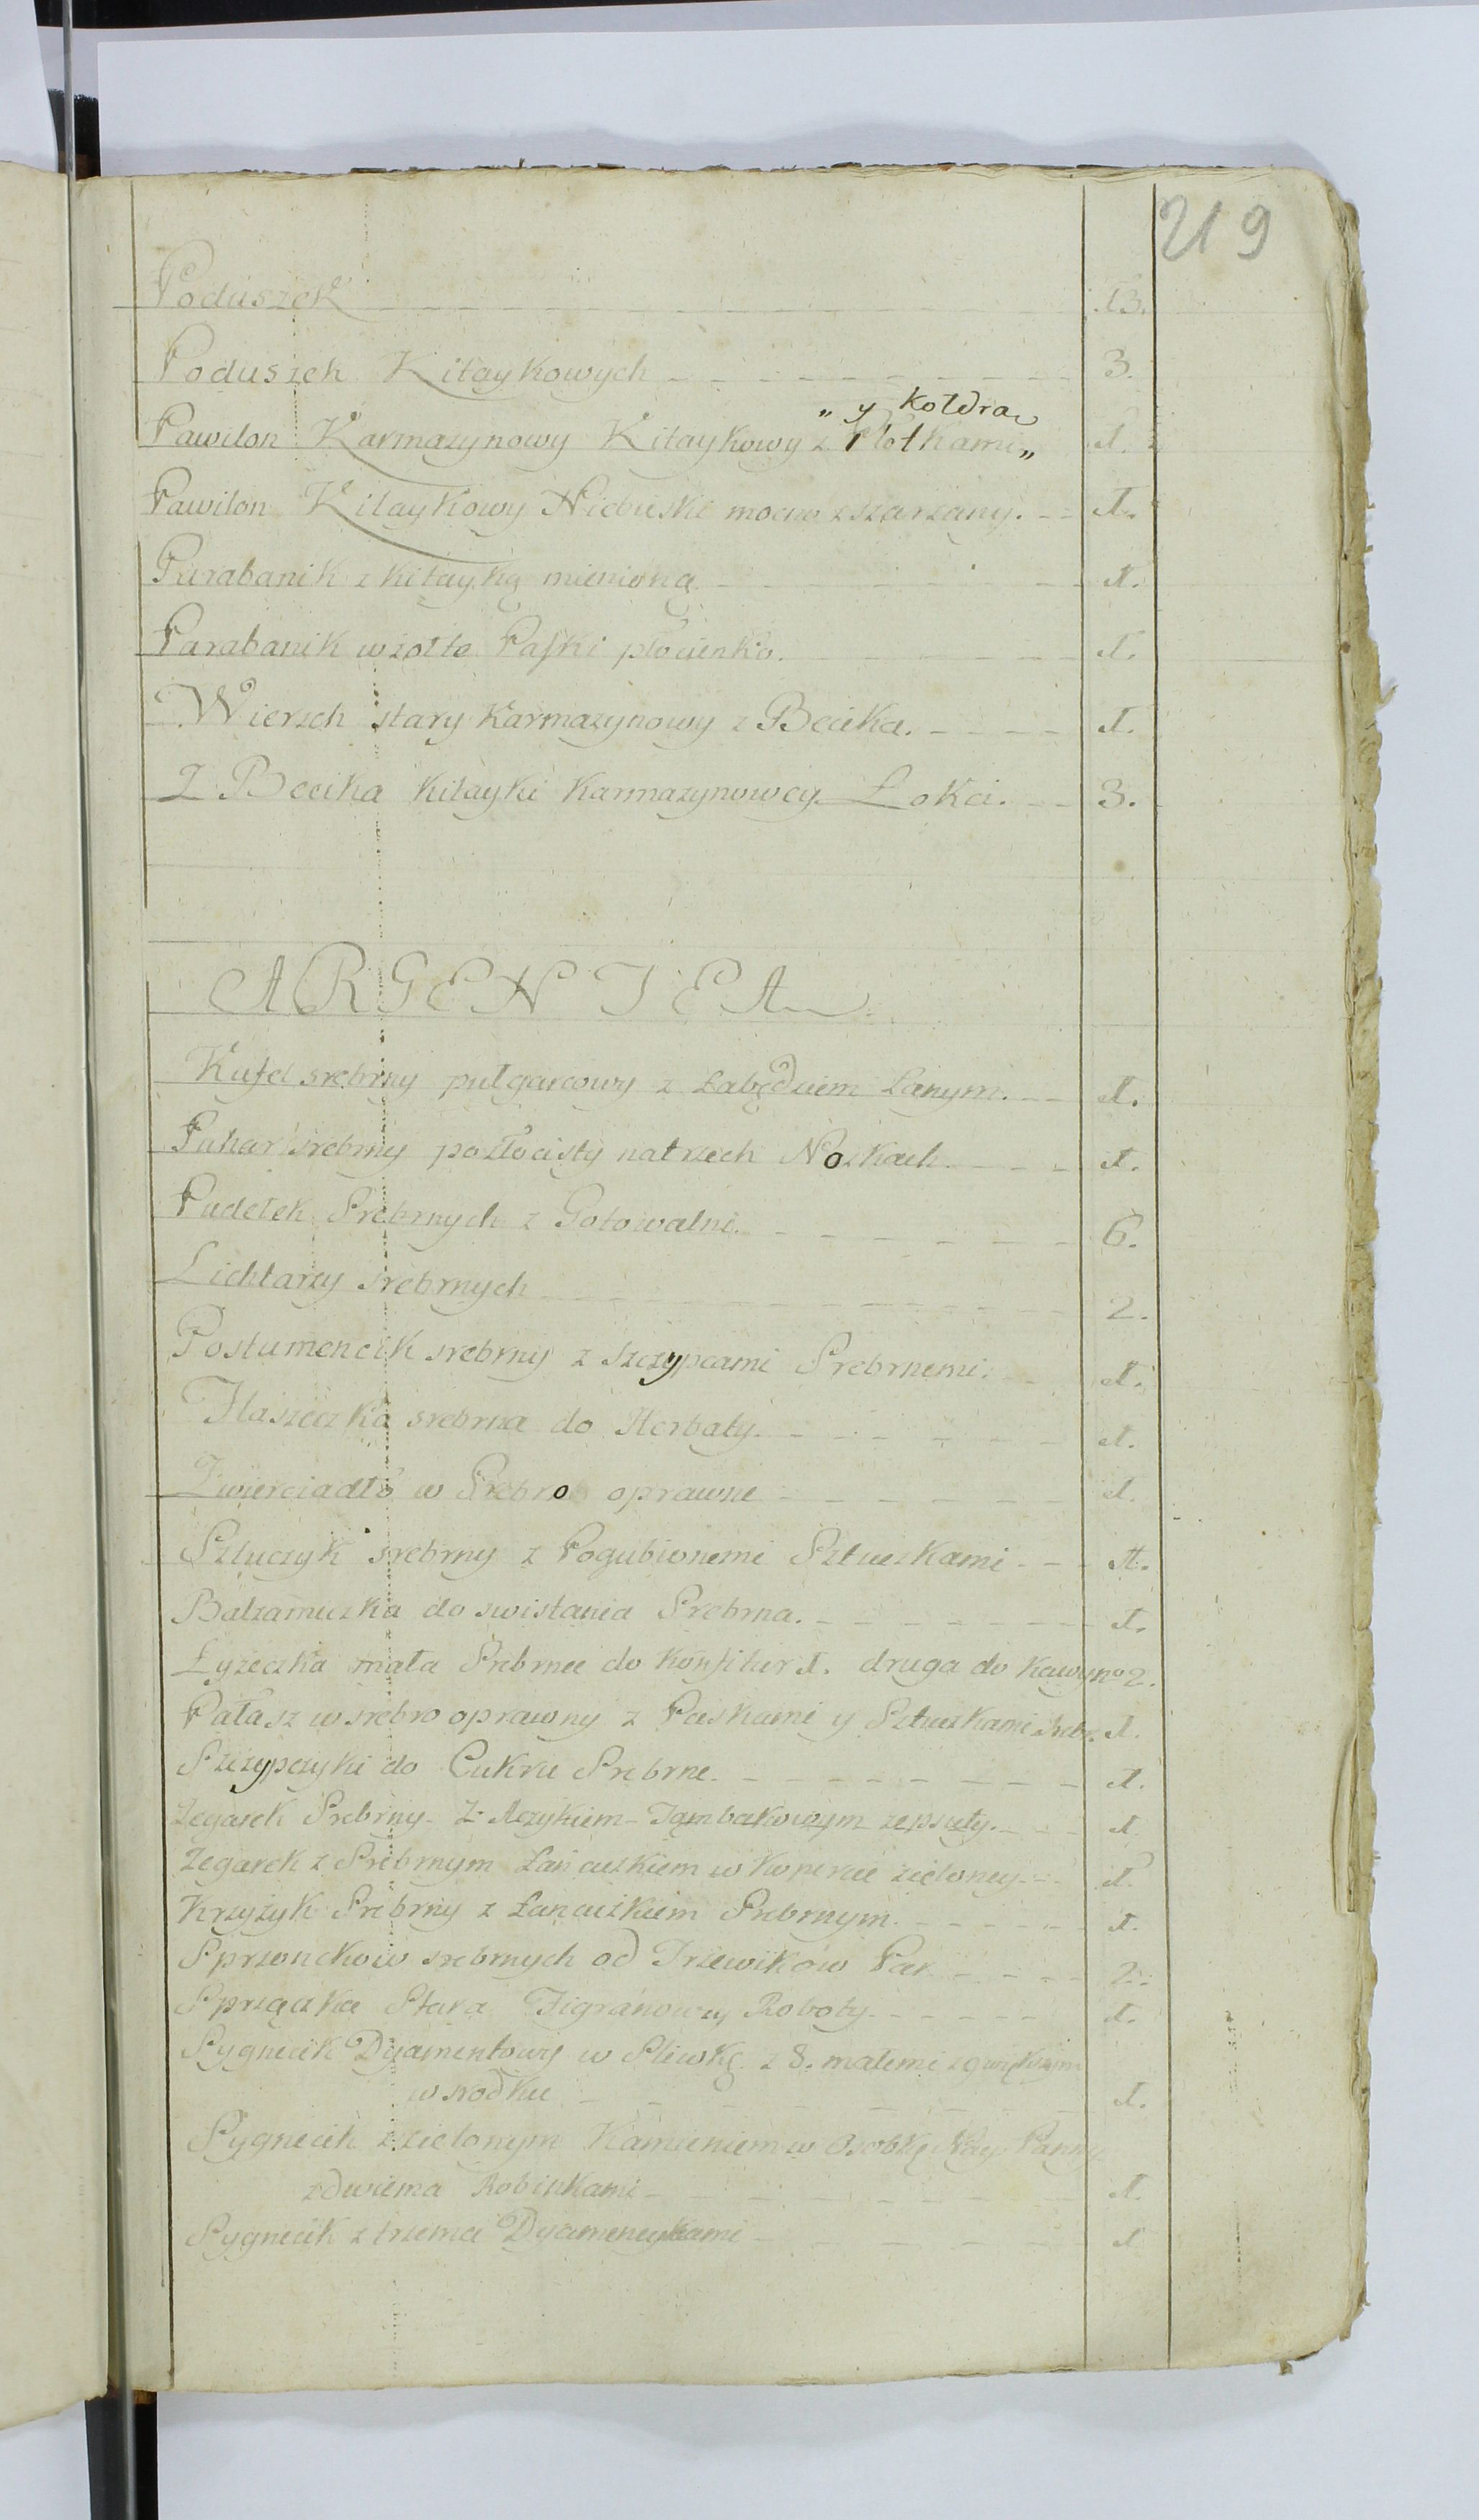 219
Poduszek 13.
Poduszek Kitaykowych 3.
„ y Kołdra
Pawilon Karmazynowy Kitaykowy z Plotkami „ 1.
Pawilon Kitaykowy Niebieski mocno zszarzany. 1.
Parabanik z kitayką mienioną 1.
Parabanik w żołte Paski płocienko. 1.
Wierzch stary Karmazynowy z Becika. 1.
Z Becika kitayki Karmazynowey Łokci. 3.
ARGENTEA
Kufel srebrny pułgarcowy z Łabędziem Lanym. 1.
Puhar srebrny pozłocisty na trzech Nozkach 1.
Pudełek Srebrnych z Gotowalni. 6.
Lichtarzy srebrnych 2.
Postumencik srebrny z szczypcami Srebrnemi. 1.
Flaszeczka srebrna do Herbaty. 1.
Zwierciadło w Srebro oprawne 1.
Sztuczyk srebrny z Pogubionemi Sztuczkami 1.
Balsamiczka do swistania Srebrna. 1.
Łyżeczka mała Srebrna do Konfitur 1. druga do Kawy no 2.
Pałasz w srebro oprawny z Paskami y Sztuczkami Srebr. 1.
Szczypczyki do Cukru Srebrne. 1.
Zegarek Srebrny z Tambakowym zepsuty. 1.
Zegarek z Srebrnym Łancuszkiem w Kopercie zieloney 1.
Krzyżyk Srebrny z Łancuszkiem Srebrnym. 1.
Sprzonckow srebrnych od Trzewikow Par 2.
Sprzączka Stara Figranowey Roboty 1.
Sygnecik Dyamentowy w Sliwkę z 8. małemi z 9 większym
w srodku 1.
Sygnecik z zielonym Kamieniem w Osobkę Nay: Panny
z dwiema Robinkami 1.
Sygnecik z trzema Dyamencykami 1